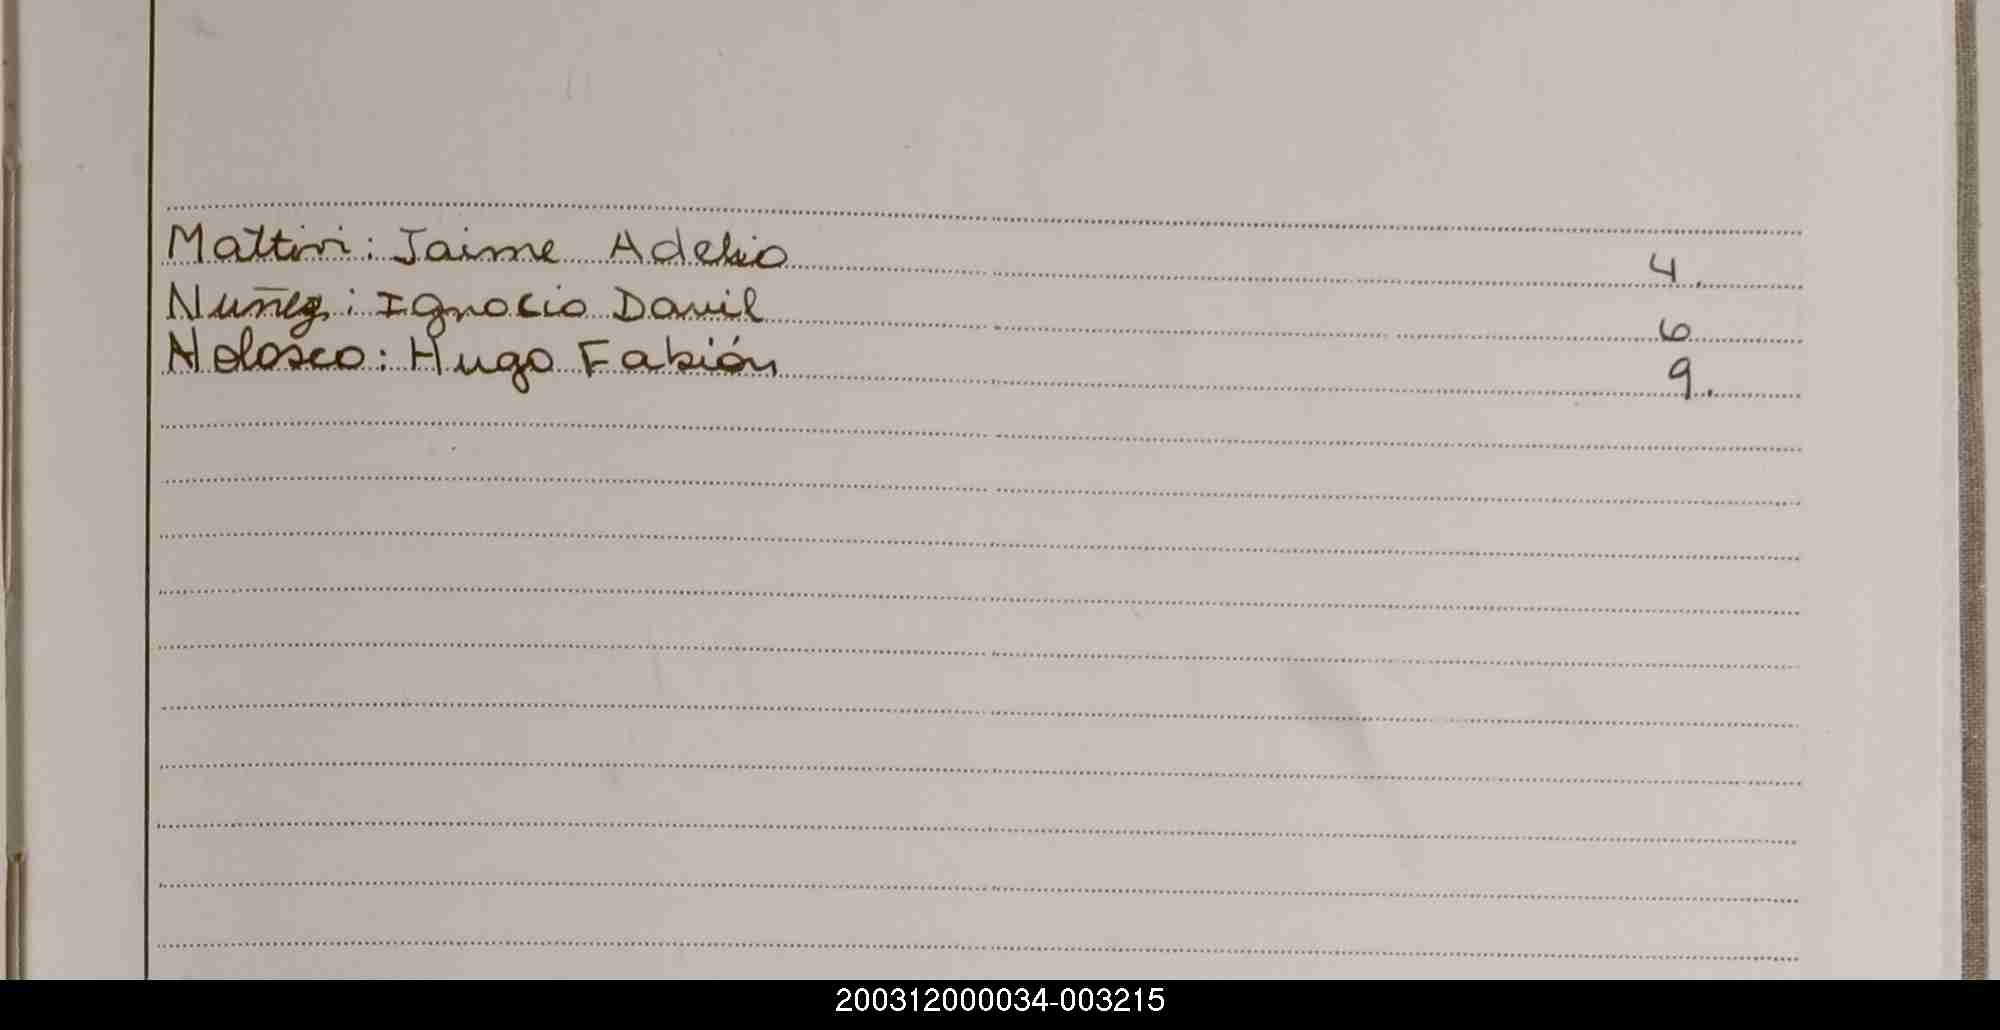 Mattivi: Jaime Adelio 4.
Nuñez: Ignacio David 6
Nolasco: Hugo Fabián 9.
200312000034-003215